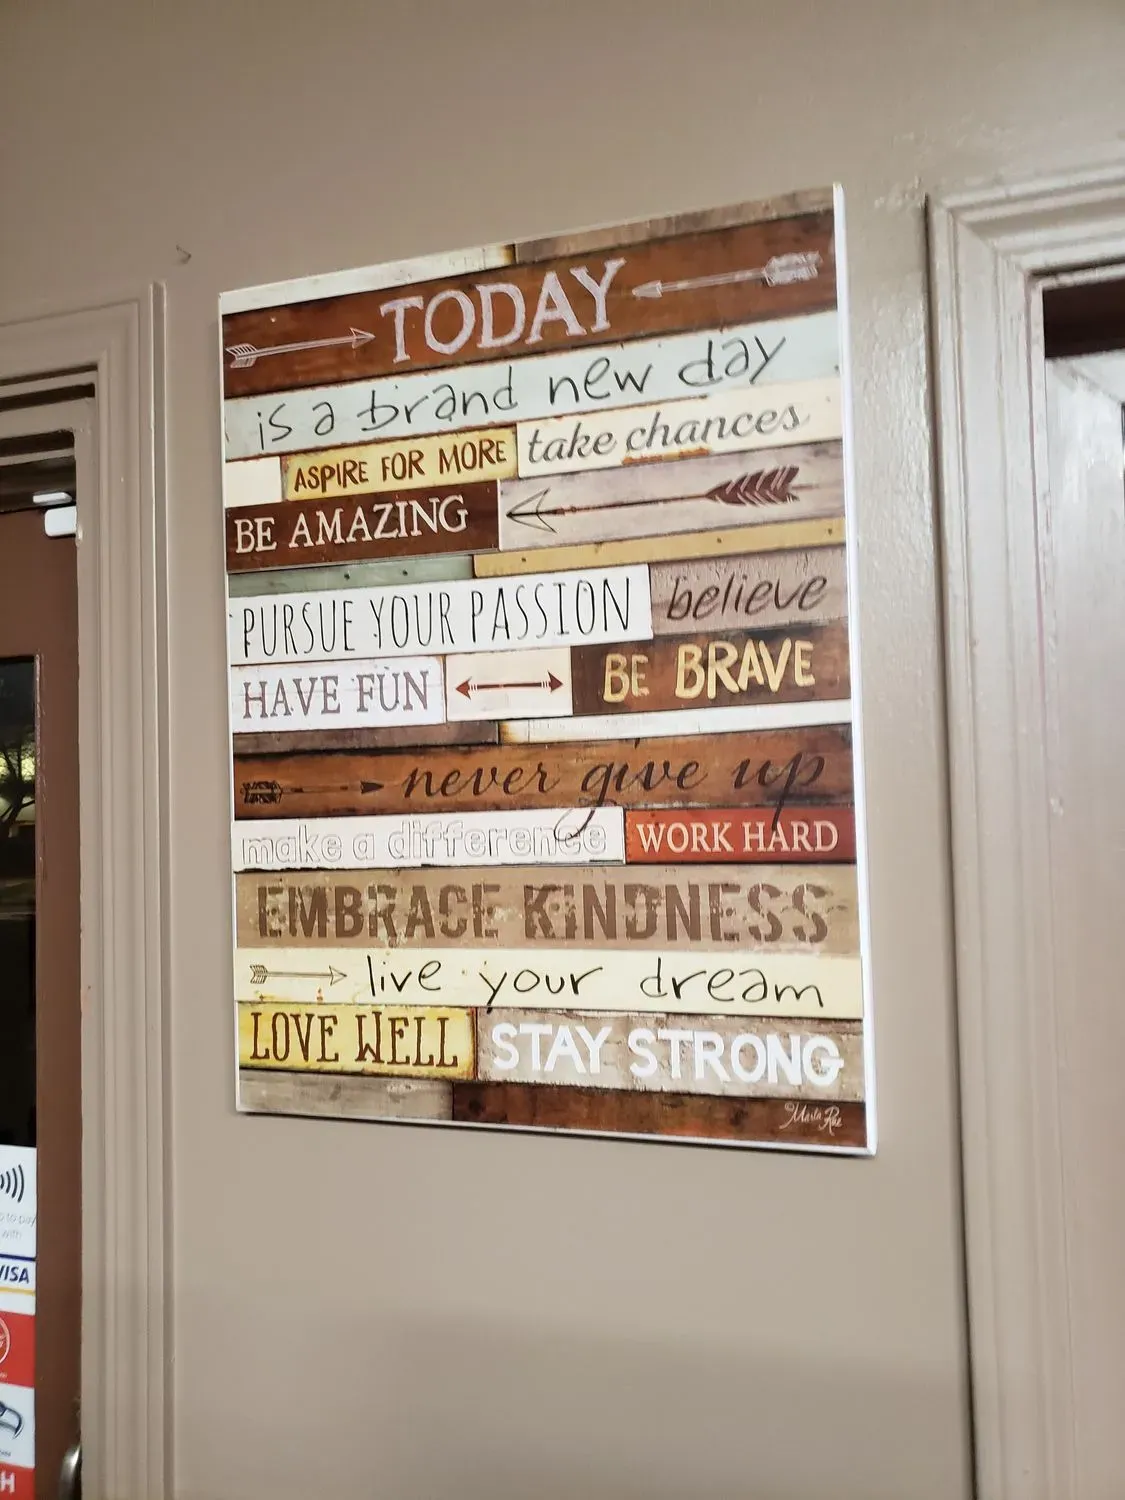 TODAY
is a brand new day
ASPIRE FOR MORE take chances
BE AMAZING
PURSUE YOUR PASSION believe
HAVE FUN BE BRAVE
never give up
make a difference WORK HARD
EMBRACE KINDNESS
live your dream
LOVE WELL STAY STRONG
©Marla Rae
to pay
with
VISA
H